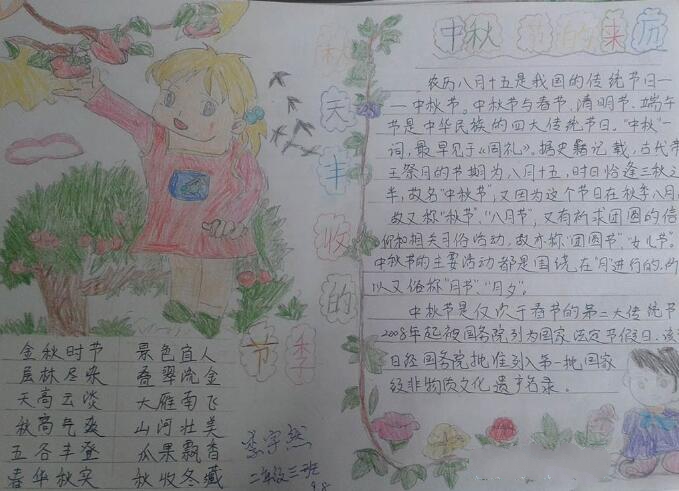 秋天丰收的季节
中秋节的来历
农历八月十五是我国的传统节日—
—中秋节。中秋节与春节、清明节、端午
节是中华民族的四大传统节日。“中秋”一
词,最早见于《周礼》。据史籍记载,古代帝
王祭月的节期为八月十五,时日恰逢三秋之
半,故名“中秋节”,又因为这个节日在秋季八月
故又称“秋节”、“八月节”,又有祈求团圆的信
仰和相关习俗活动,故亦称“团圆节”、“女儿节”。
中秋节的主要活动都是围绕在“月”进行的,所
以又俗称“月节”、“月夕”。
中秋节是仅次于春节的第二大传统节
2008年起被国务院列为国家法定节假日。该
日经国务院批准列入第一批国家
级非物质文化遗产名录。
金秋时节 景色宜人
层林尽染 叠翠流金
天高云淡 大雁南飞
秋高气爽 山河壮美
五谷丰登 瓜果飘香
春华秋实 秋收冬藏
李宇然
二年级三班
9.8